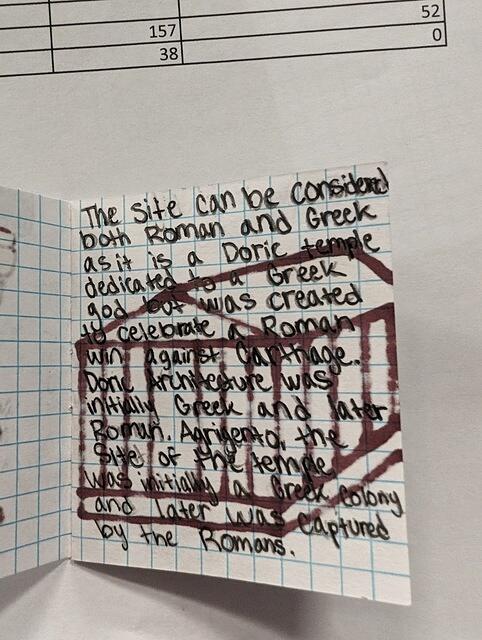 52
157
0
38
The site can be considered
both Roman and Greek
as it is a Doric temple
dedicated to a Greek
god but was created
to celebrate a Roman
win against Carthage.
Doric Architecture was
initially Greek and later
Roman. Agrigento, the
site of the temple
was initially a Greek colony
and later was captured
by the Romans.